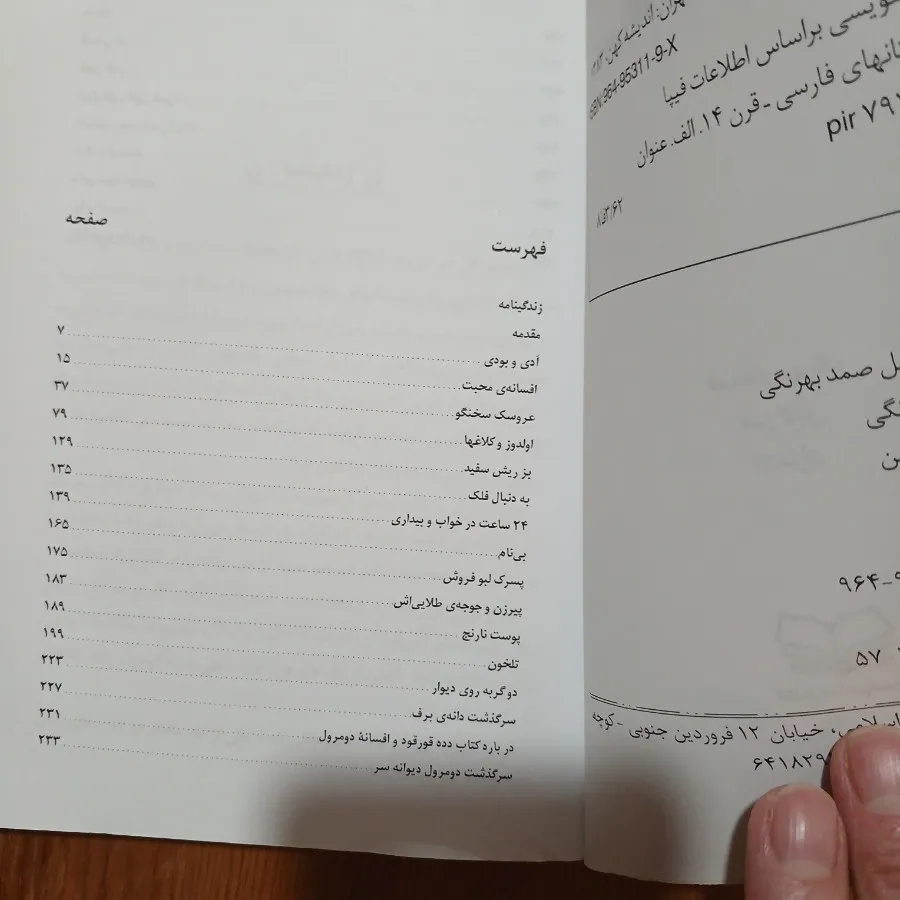 ویسی براساس اطلاعات فیپا
ISBN 964-95311-9-X
فارسی - قرن ۱۴. الف. عنوان
pir ۷۹
۸فا۳/۶۲
صمد بهرنگی
۹۶۴-۹
۵۷
خیابان ۱۲ فروردین جنوبی - کوچه
۶۴۱۸۲۹
فهرست صفحه
زندگینامه
مقدمه
آدی و بودی ۷
افسانه‌ی محبت ۱۵
عروسک سخنگو ۳۷
اولدوز و کلاغها ۷۹
بز ریش سفید ۱۲۹
به دنبال فلک ۱۳۵
۲۴ ساعت در خواب و بیداری ۱۳۹
بی‌نام ۱۶۵
پسرک لبو فروش ۱۷۵
پیرزن و جوجه‌ی طلایی‌اش ۱۸۳
پوست نارنج ۱۸۹
تلخون ۱۹۹
دو گربه روی دیوار ۲۲۳
سرگذشت دانه‌ی برف ۲۲۷
در باره کتاب دده قورقود و افسانهٔ دومرول ۲۳۱
سرگذشت دومرول دیوانه سر ۲۳۳